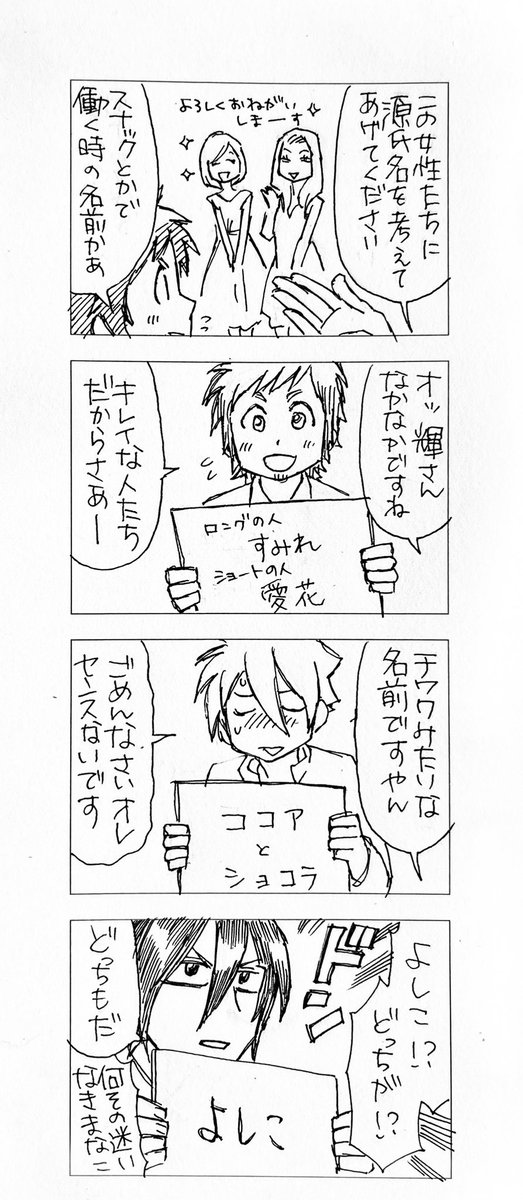 この女性たちに
源氏名を考えて
あげてください
よろしくおねがい
しまーす
スナックとかで
働く時の名前かぁ
オッ輝さん
なかなかですね
ロングの人
すみれ
ショートの人
愛花
キレイな人たち
だからさあー
チワワみたいな
名前ですやん
ココア
と
ショコラ
ごめんなさいオレ
センスないです
よしこ!?
どっちが!?
ドン
よしこ
どっちもだ
何その迷い
なきまなこ